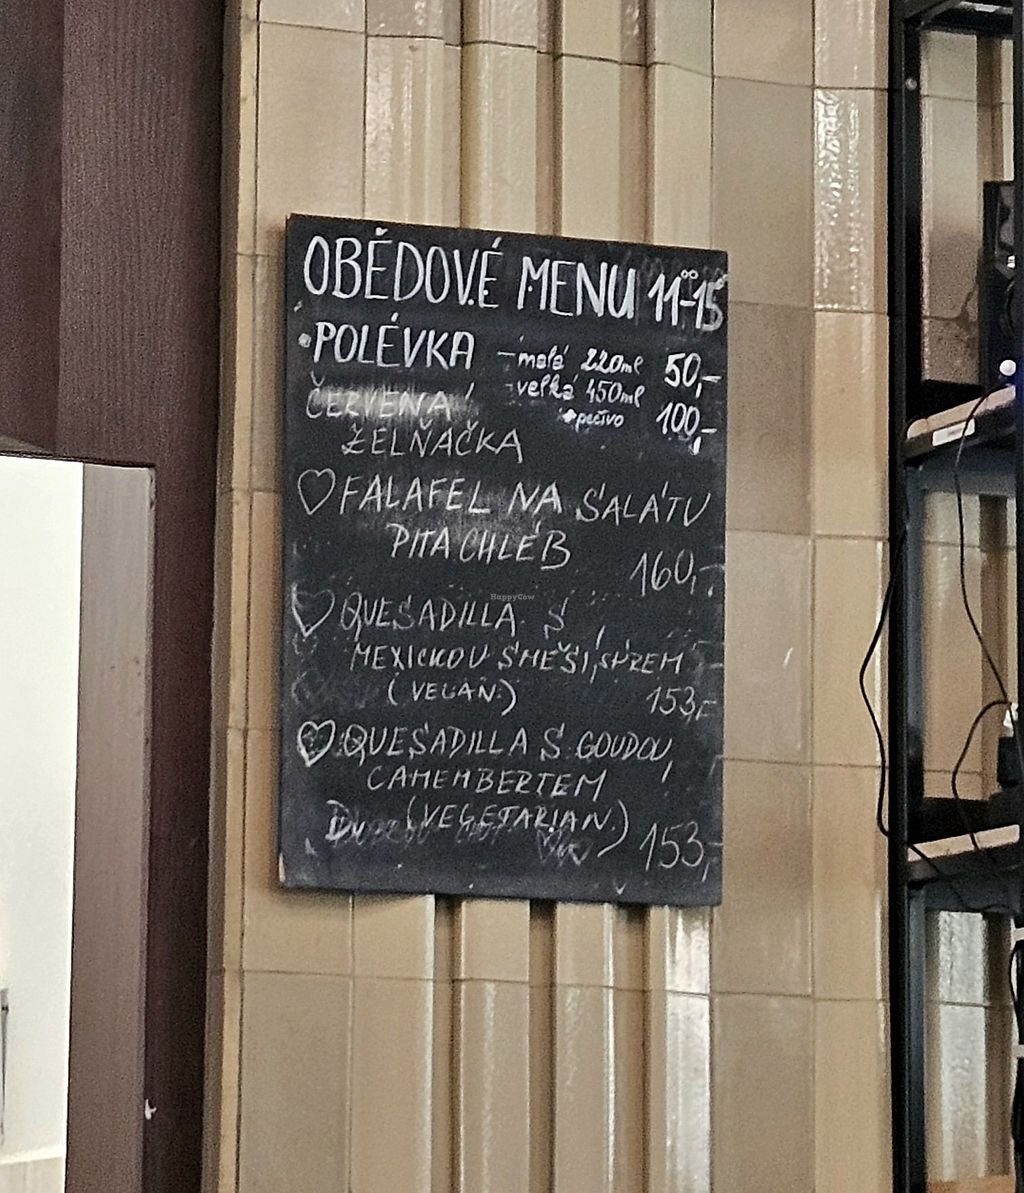 OBĚDOVÉ MENU 11⁰⁰-15⁰⁰
• POLÉVKA - malá 220ml 50,-
- velká 450ml 100,-
+ pečivo
ČERVENÁ
ZELŇAČKA
♡ FALAFEL NA SALÁTU
PITA CHLÉB 160,-
♡ QUESADILLA S
MEXICKOU SMĚSÍ, SÝREM
(VEGAN.) 153,-
♡ QUESADILLA S GOUDOU,
CAMEMBERTEM
(VEGETARIAN.) 153,-
HappyCow